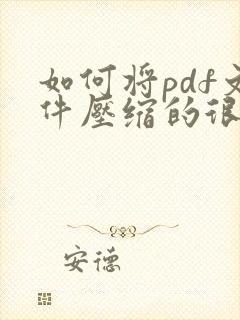 如何将pdf文
件壓缩的很
安德